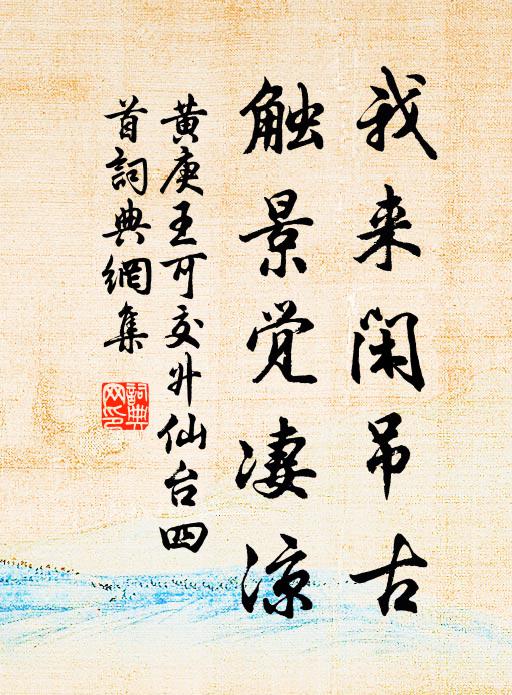 我来闲吊古
触景觉凄凉
黄庚王可交升仙台四
首词典网集
词典网印